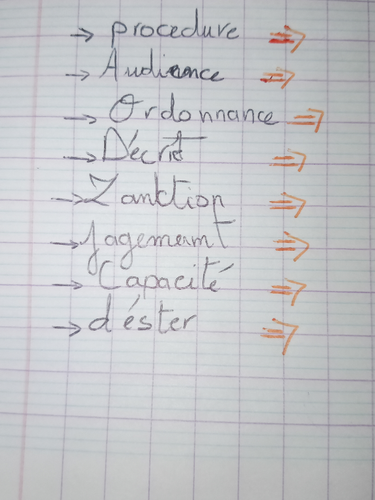 → procedure ⇒
→ Audience ⇒
→ Ordonnance ⇒
→ Décrit ⇒
→ Zanktion ⇒
→ Jagement ⇒
→ Capacité ⇒
→ d'éster ⇒